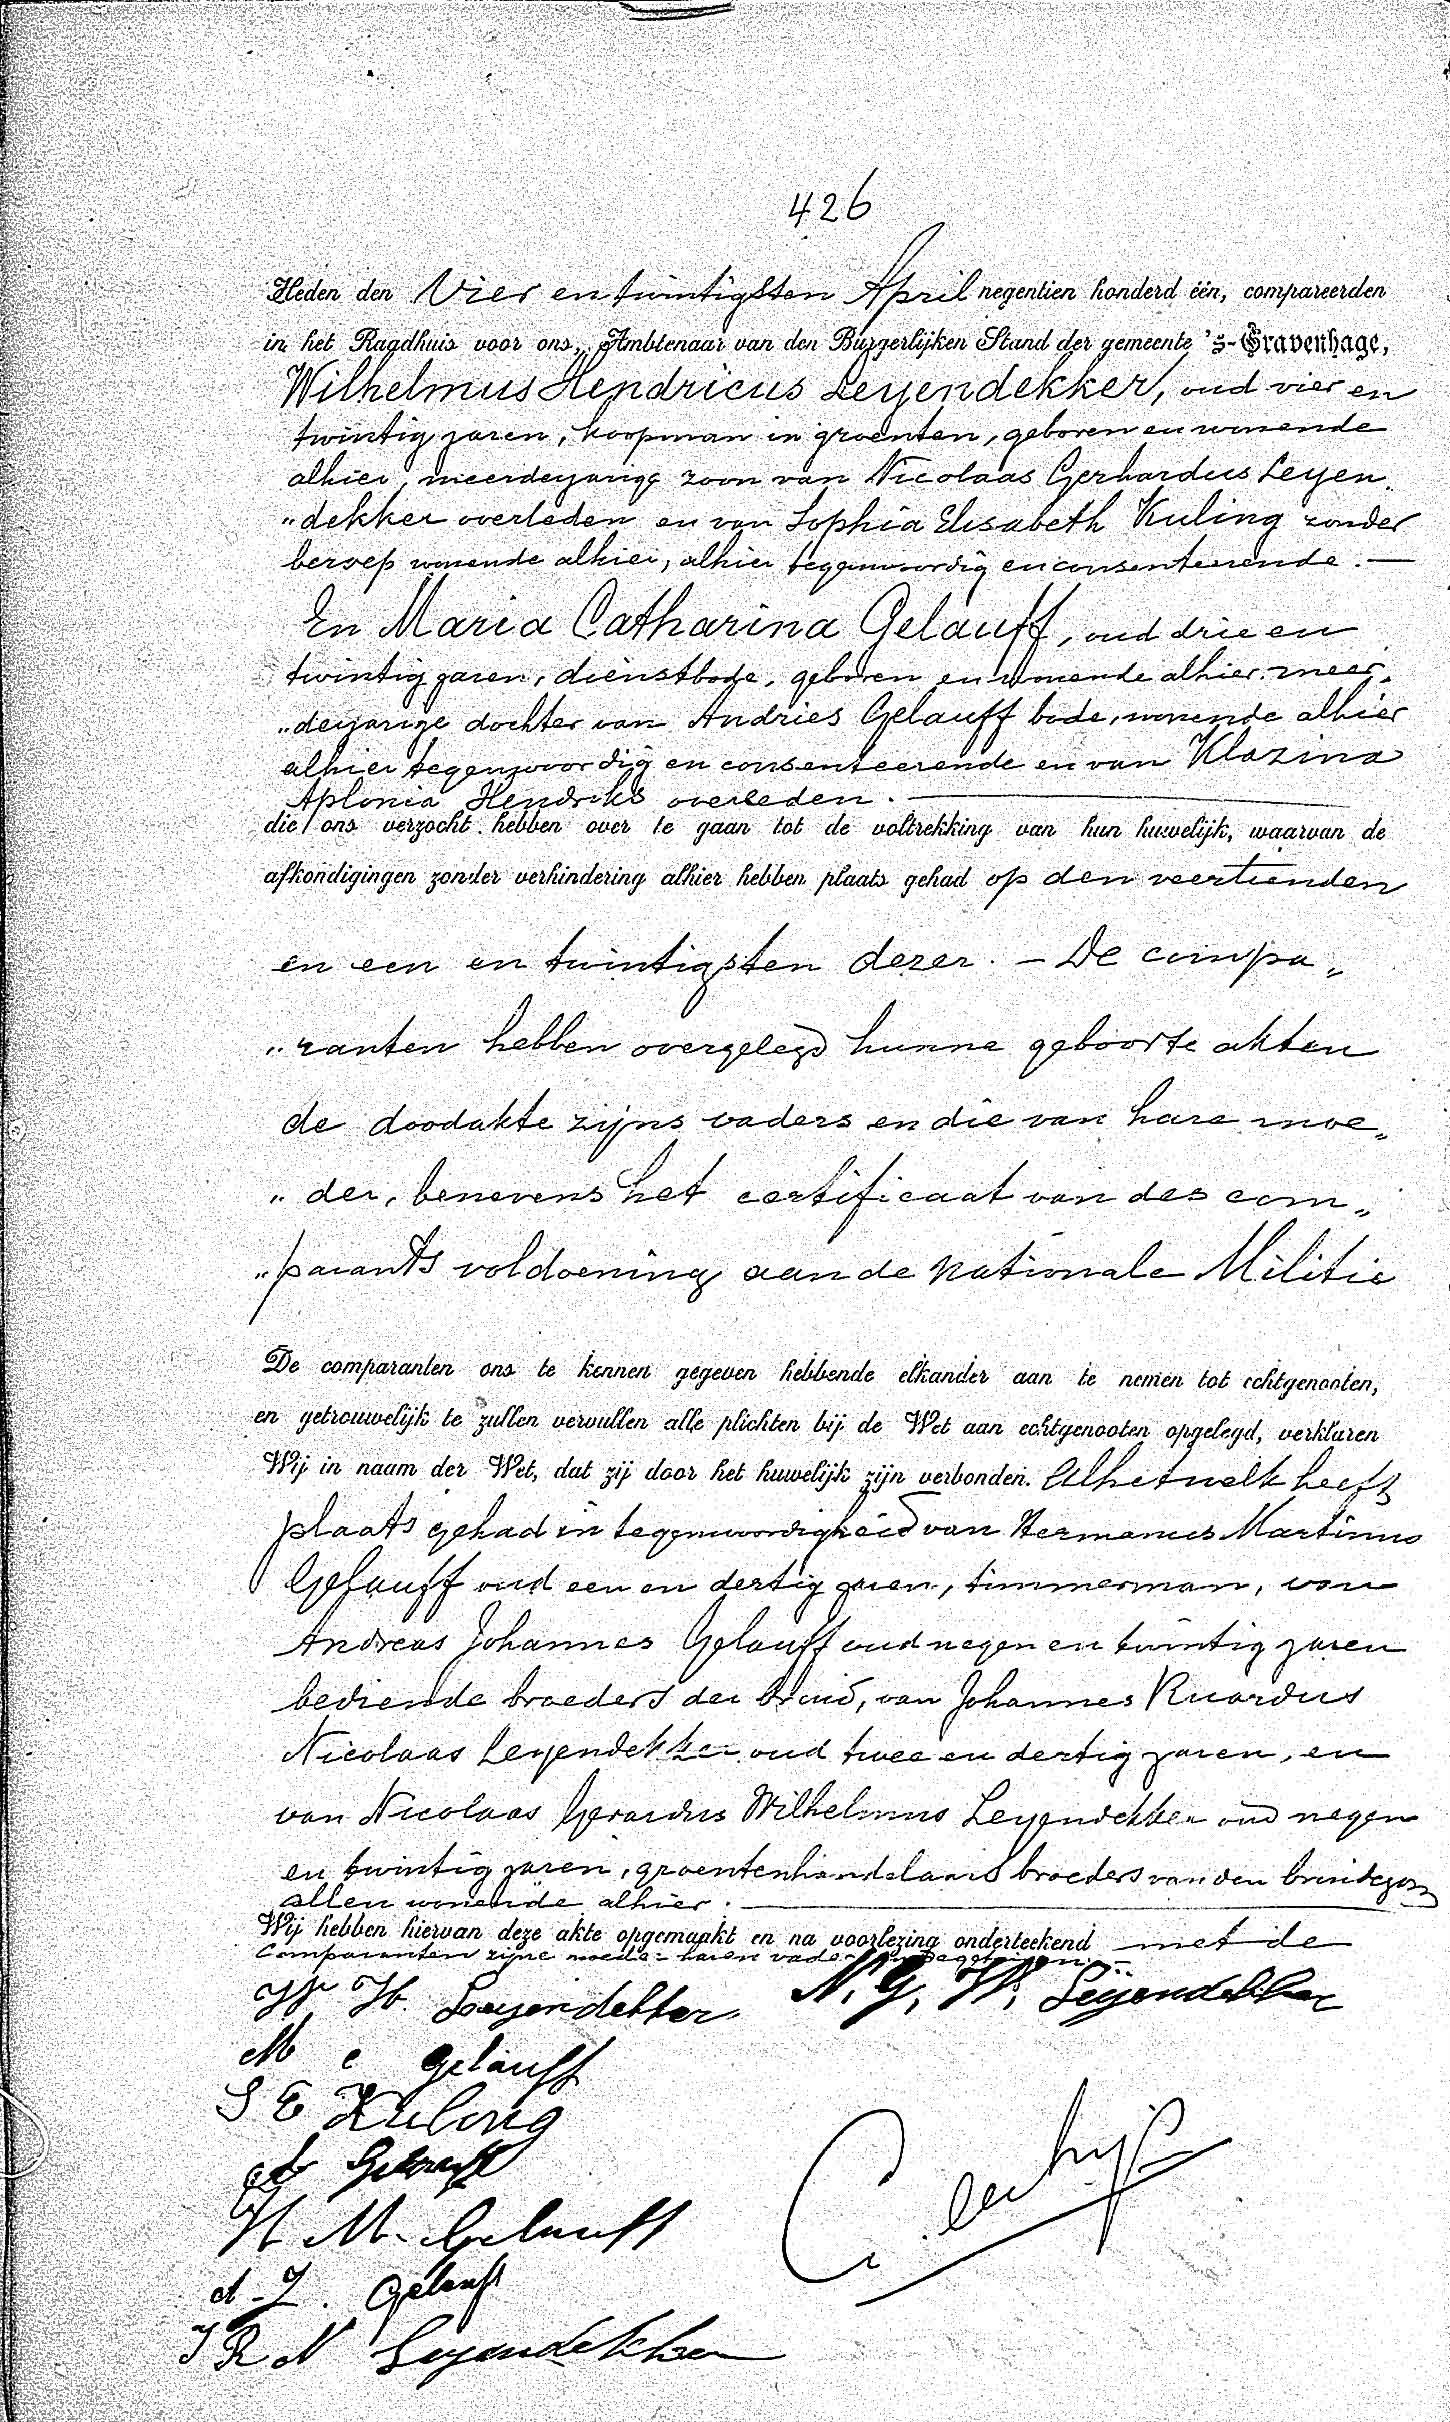 426
Heden den Vier en twintigsten April negentien honderd één, compareerden
in het Raadhuis voor ons, Ambtenaar van den Burgerlijken Stand der gemeente 's-Gravenhage,
Wilhelmus Hendricus Leyendekker, oud vier en
twintig jaren, koopman in groenten, geboren en wonende
alhier, meerderjarige zoon van Nicolaas Gerhardus Leyen„
„dekker overleden en van Sophia Elisabeth Kuling zonder
beroep wonende alhier, alhier tegenwoordig en consenteerende. —
En Maria Catharina Gelauff, oud drie en
twintig jaren, dienstbode, geboren en wonende alhier, meer„
„derjarige dochter van Andries Gelauff bode, wonende alhier
alhier tegenwoordig en consenteerende en van Klazina
Aplonia Hendriks overleden. —
die ons verzocht hebben over te gaan tot de voltrekking van hun huwelijk, waarvan de
afkondigingen zonder verhindering alhier hebben plaats gehad op den veertienden
en een en twintigsten dezer. — De compa„
„ranten hebben overgelegd hunne geboorte akten
de doodakte zijns vaders en die van hare moe„
„der, benevens het certificaat van des com„
„parants voldoening aan de Nationale Militie
De comparanten ons te kennen gegeven hebbende elkander aan te nemen tot echtgenooten,
en getrouwelijk te zullen vervullen alle plichten bij de Wet aan echtgenooten opgelegd, verklaren
Wij in naam der Wet, dat zij door het huwelijk zijn verbonden. Alhetwelk heeft
plaats gehad in tegenwoordigheid van Hermanus Martinus
Gelauff oud een en dertig jaren, timmerman, van
Andreas Johannes Gelauff oud negen en twintig jaren
bediende broeders der bruid, van Johannes Ruardus
Nicolaas Leyendekker oud twee en dertig jaren, en
van Nicolaas Gerardus Wilhelmus Leyendekker oud negen
en twintig jaren, groentenhandelaars broeders van den bruidegom
allen wonende alhier. —
Wij hebben hiervan deze akte opgemaakt en na voorlezing onderteekend met de
Comparanten zijne moeder haren vader en getuigen. —
W H Leyendekker N. G. W. Leyendekker
M C Gelauff
S E Kuling
A Gelauff
H M. Gelauff
A. J. Gelauff
J R N Leyendekker